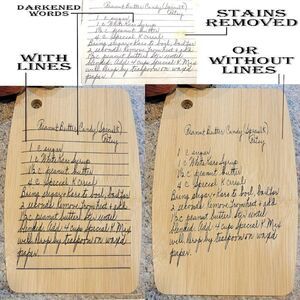 DARKENED
WORDS
STAINS
REMOVED
WITH
LINES
OR
WITHOUT
LINES
Peanut Butter Candy (Special K)
Patsy
1 c sugar
1 c White Karo Syrup
1½ c peanut butter
4 c Special K Cereal
Bring sugar + Karo to boil, boil for
2 seconds remove from heat + add
1½ c peanut butter stir until
blended. Add 4 cups Special K Mix
well. Drop by teaspoon on waxed
paper.
Peanut Butter Candy (Special K)
Patsy
1 c sugar
1 c White Karo Syrup
1½ c peanut butter
4 c Special K Cereal
Bring sugar + Karo to boil, boil for
2 seconds remove from heat + add
1½ c peanut butter stir until
blended. Add 4 cups Special K Mix
well. Drop by teaspoon on waxed
paper.
Peanut Butter Candy (Special K)
Patsy
1 c sugar
1 c White Karo Syrup
1½ c peanut butter
4 c Special K Cereal
Bring sugar + Karo to boil, boil for
2 seconds remove from heat + add
1½ c peanut butter stir until
blended. Add 4 cups Special K Mix
well. Drop by teaspoon on waxed
paper.